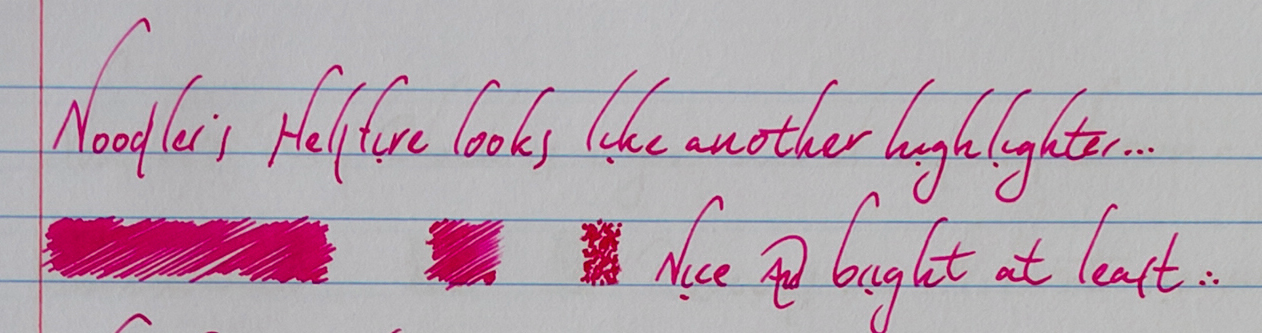 Noodler's Hellfire looks like another highlighter...
Nice and bright at least ∴